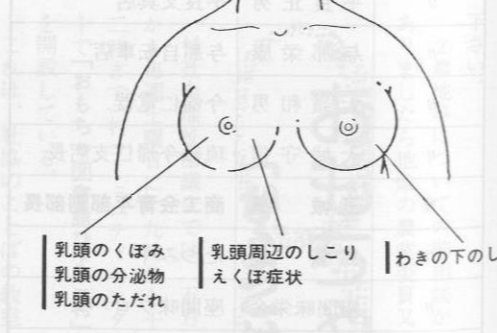 乳頭のくぼみ
乳頭の分泌物
乳頭のただれ
乳頭周辺のしこり
えくぼ症状
わきの下のし